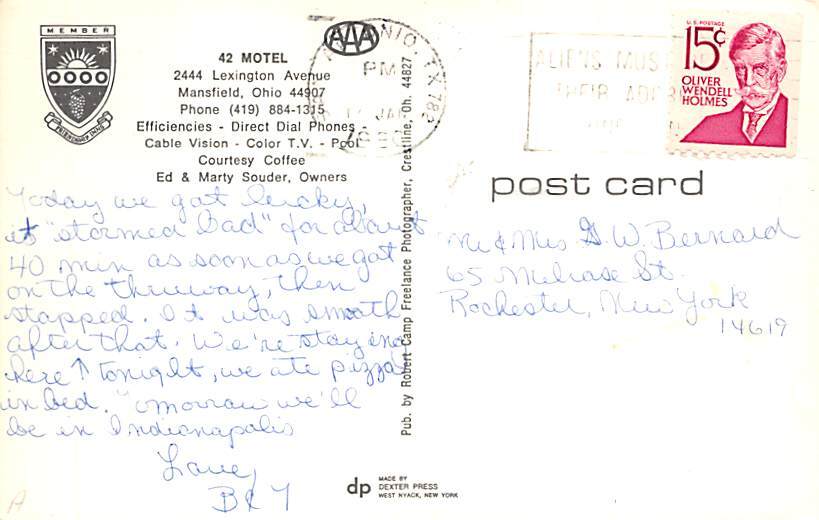 MEMBER
FRIENDSHIP INNS
AAA
42 MOTEL
2444 Lexington Avenue
Mansfield, Ohio 44907
Phone (419) 884-1315
Efficiencies - Direct Dial Phones -
Cable Vision - Color T.V. - Pool
Courtesy Coffee
Ed & Marty Souder, Owners
Today we got lucky,
it "stormed bad" for about
40 min as soon as we got
on the thruway, then
stopped. It was smooth
after that. We're staying
here ↑ tonight, we ate pizza
in bed. Tomorrow we'll
be in Indianapolis
Love,
B & T
Pub. by Robert Camp Freelance Photographer, Crestline, Oh. 44827
ANTONIO, TX 782
PM
JAN
1980
ALIENS MUST
THEIR ADDR
U.S. POSTAGE
15¢
OLIVER
WENDELL
HOLMES
post card
Mr & Mrs G. W. Bernard
65 Melrose St.
Rochester, New York
14619
dp
MADE BY
DEXTER PRESS
WEST NYACK, NEW YORK
A